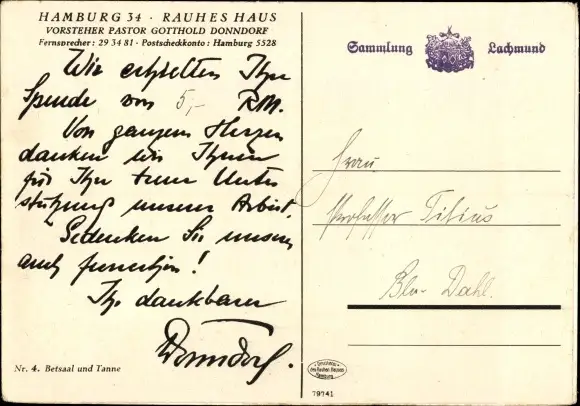 HAMBURG 34 · RAUHES HAUS
VORSTEHER PASTOR GOTTHOLD DONNDORF
Fernsprecher: 29 34 81 · Postscheckkonto: Hamburg 5528
Wir erhielten Ihre
Spende von 5,- RM.
Von ganzem Herzen
danken wir Ihnen
für Ihre treue Unter
stützung unserer Arbeit.
Gedenken Sie unserer
auch fernerhin!
Ihr dankbarer
Donndorf.
Nr. 4. Betsaal und Tanne
Sammlung Lachmund
Frau
Professor Titius
Bln- Dahl.
Druckerei
des Rauhen Hauses
Hamburg
79941